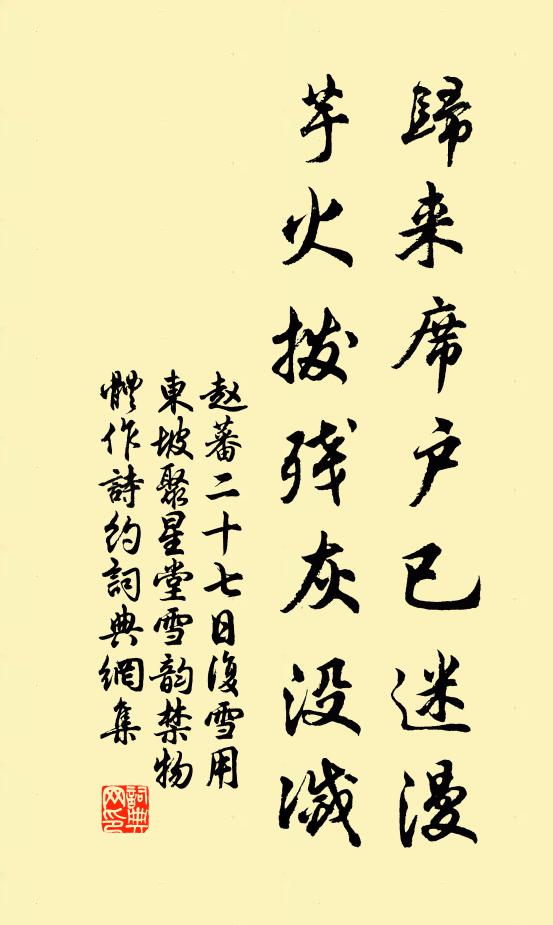 歸来席户已迷漫
芋火拨残灰没滅
赵蕃二十七日復雪用
東坡聚星堂雪韵禁物
體作詩约詞典網集
詞典
网印